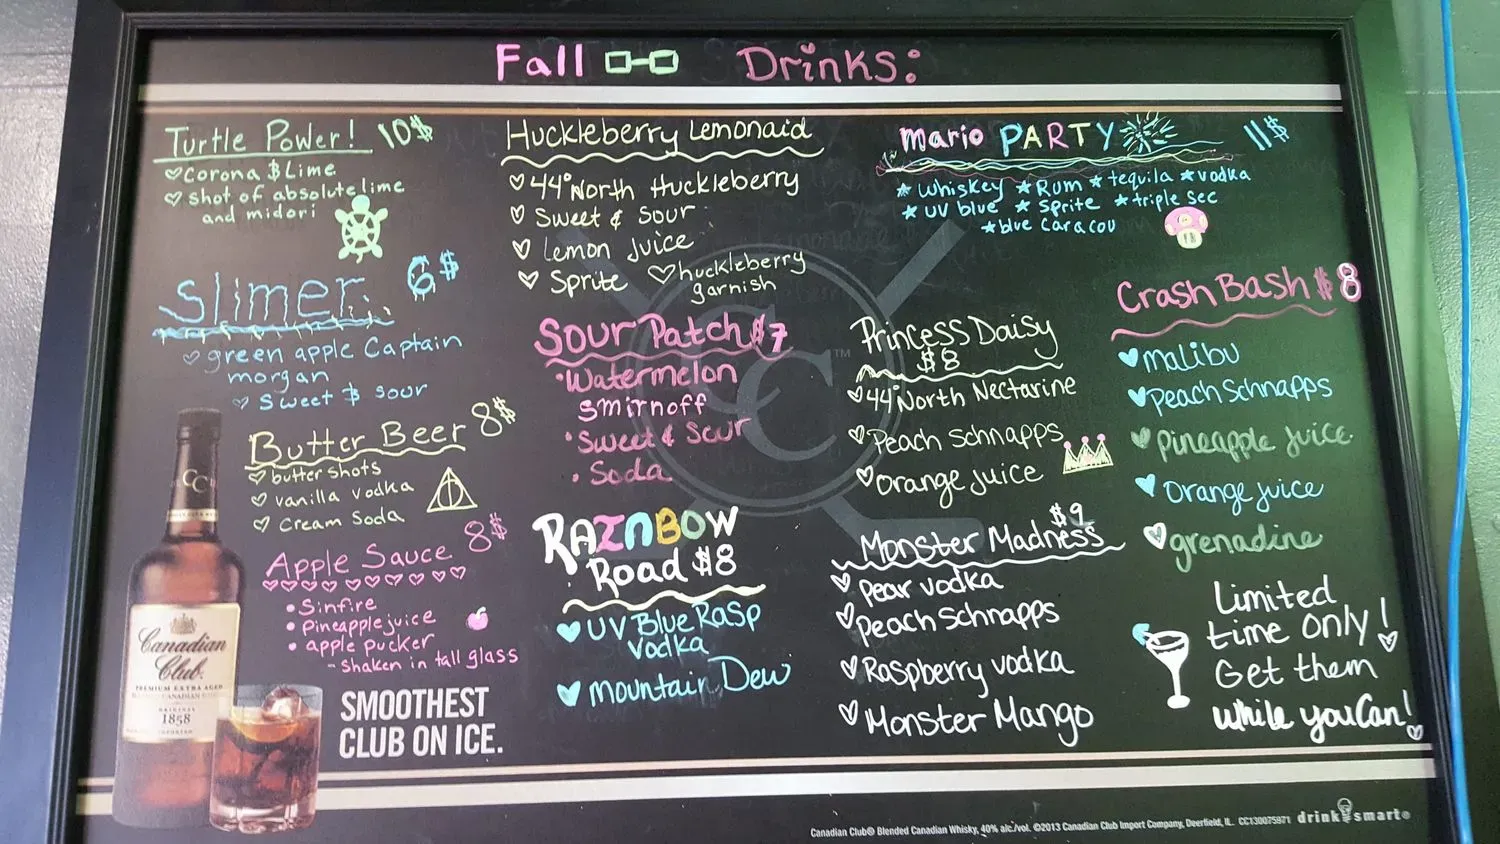 Fall Drinks:
Turtle Power! 10$
Corona $ Lime
Shot of absolute lime
and midori
Slimer 6$
green apple Captain
morgan
Sweet $ sour
Butter Beer 8$
butter shots
vanilla vodka
Cream Soda
Apple Sauce 8$
Sinfire
Pineapple juice
apple pucker
- shaken in tall glass
Huckleberry Lemonaid
44° North Huckleberry
Sweet & Sour
Lemon Juice
Sprite huckleberry
garnish
Sour Patch $7
Watermelon
Smirnoff
Sweet & Sour
Soda
RAINBOW
Road $8
UV Blue Rasp
Vodka
Mountain Dew
Mario PARTY 11$
Whiskey Rum tequila vodka
UV blue Sprite triple sec
blue Caracou
Princess Daisy
$8
44° North Nectarine
Peach Schnapps
Orange Juice
Monster Madness $9
Pear vodka
Peach Schnapps
Raspberry vodka
Monster Mango
Crash Bash $8
Malibu
Peach Schnapps
Pineapple Juice
Orange Juice
grenadine
Limited
time Only!
Get them
While you Can!
CC
CC
TM
Canadian
Club.
PREMIUM EXTRA AGED
1858
SMOOTHEST
CLUB ON ICE.
Canadian Club® Blended Canadian Whisky, 40% alc./vol. ©2013 Canadian Club Import Company, Deerfield, IL. CC130075971 drink smart®